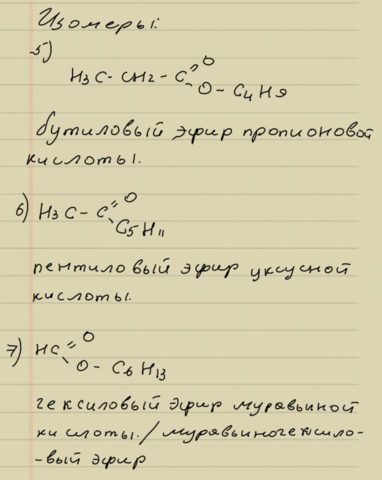 Изомеры:
5)
O
H3C - CH2 - C
O - C4H9
бутиловый эфир пропионовой
кислоты.
O
6) H3C - C
C5H11
пентиловый эфир уксусной
кислоты.
7) HC = O
O - C6H13
гексиловый эфир муравьиной
кислоты. / муравьиногексило-
-вый эфир